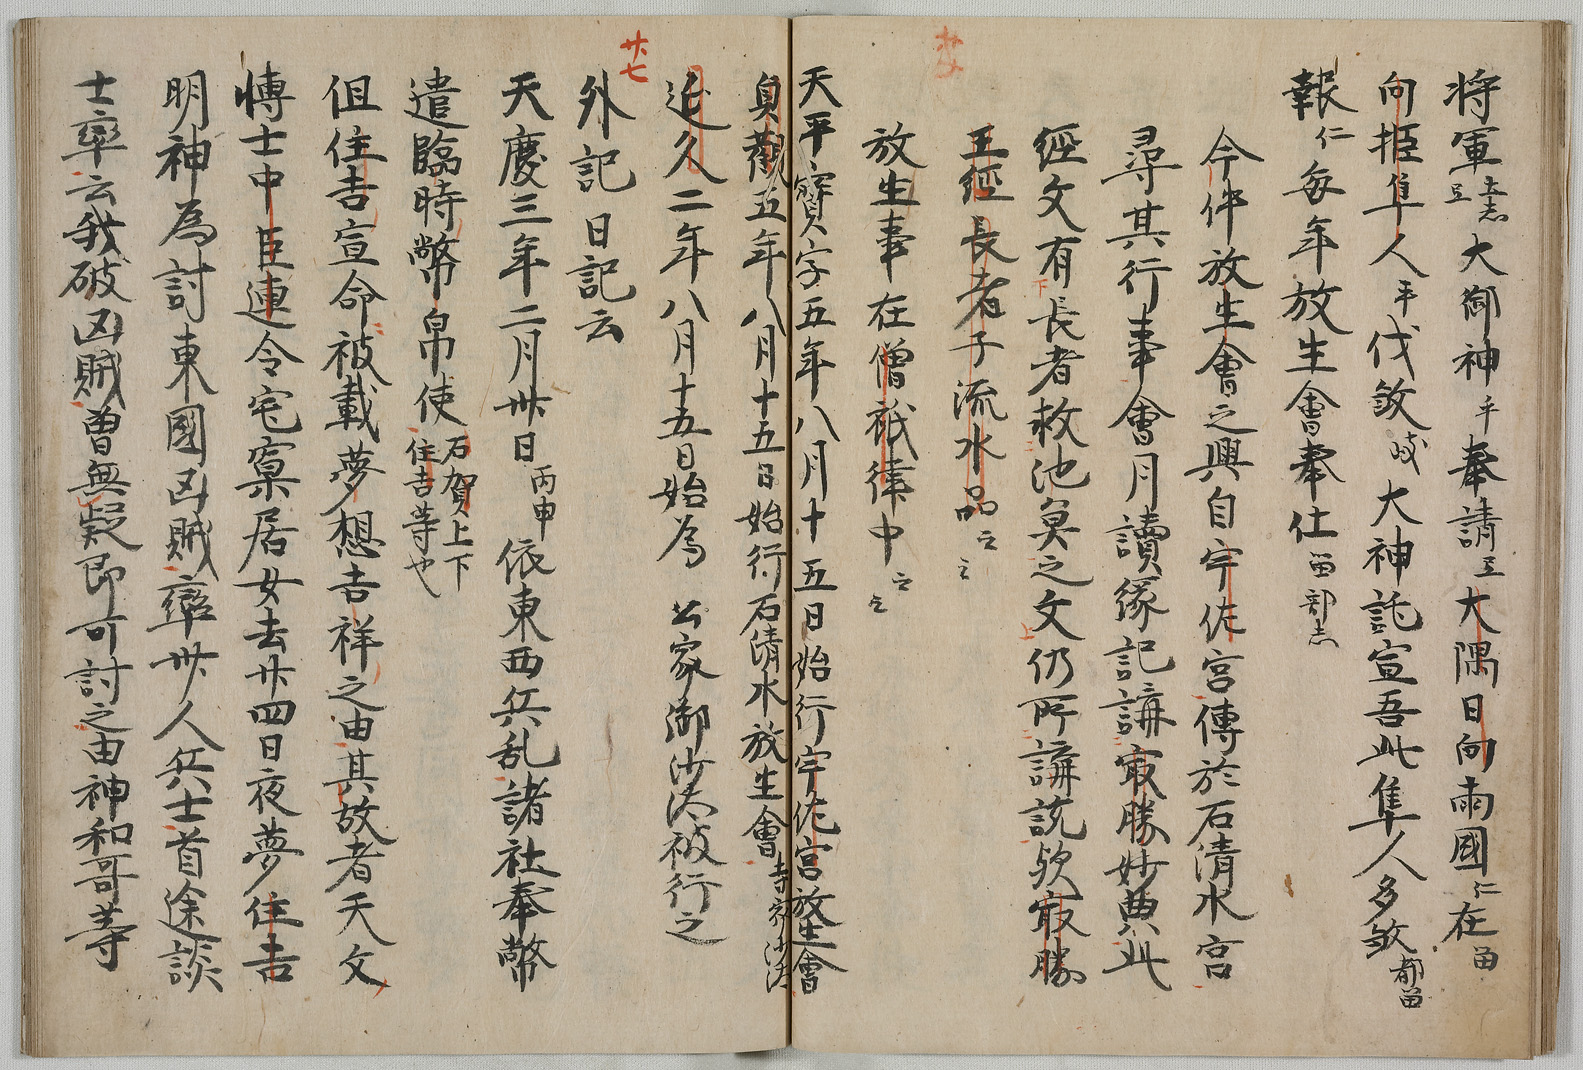 将軍志豆大御神乎奉請天大隅日向両國仁在留
向拒隼人乎伐敘岐大神託宣吾此隼人多敘都留
報仁毎年放生會奉仕留部志
今件放生會之興自宇佐宮傳於石清水宮
尋其行事會月讀縁記講冣勝妙典此
經文有長者救池魚之文仍所講説欤冣勝
王經長者子流水品云云
放生事在僧祇律中云云
天平寶字五年八月十五日始行宇佐宮放生會
貞觀五年八月十五日始行石清水放生會寺家沙汰
延久二年八月十五日始為 公家御沙汰被行之
廿七
外記日記云
天慶三年二月廿日丙申依東西兵乱諸社奉幣
遣臨時幣帛使石賀上下住吉等也
但住吉宣命被載夢想吉祥之由其故者天文
博士中臣連令宅稟居女去廿四日夜夢住吉
明神為討東國凶賊率廿人兵士首途談
士卒云我破凶賊曽無疑即可討之由神和哥等